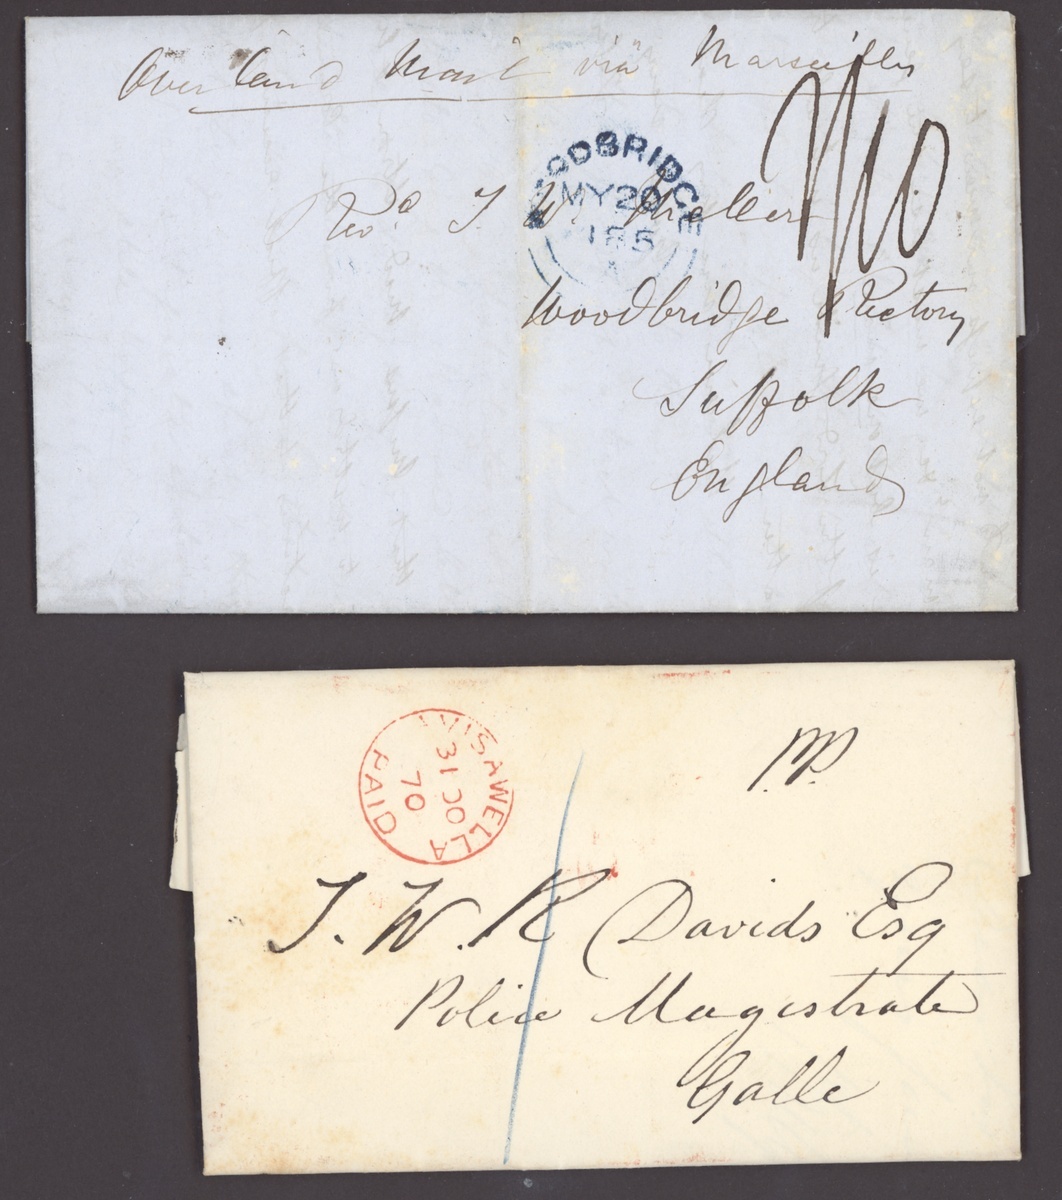 Over land Mail via Marseilles
WOODBRIDGE
MY 20
185
Revd. T. W.
Woodbridge Rectory
Suffolk
England
AVISAWELLA
31 OC
70
PAID
P.P.
T. W. R Davids Esq
Police Magistrate
Galle